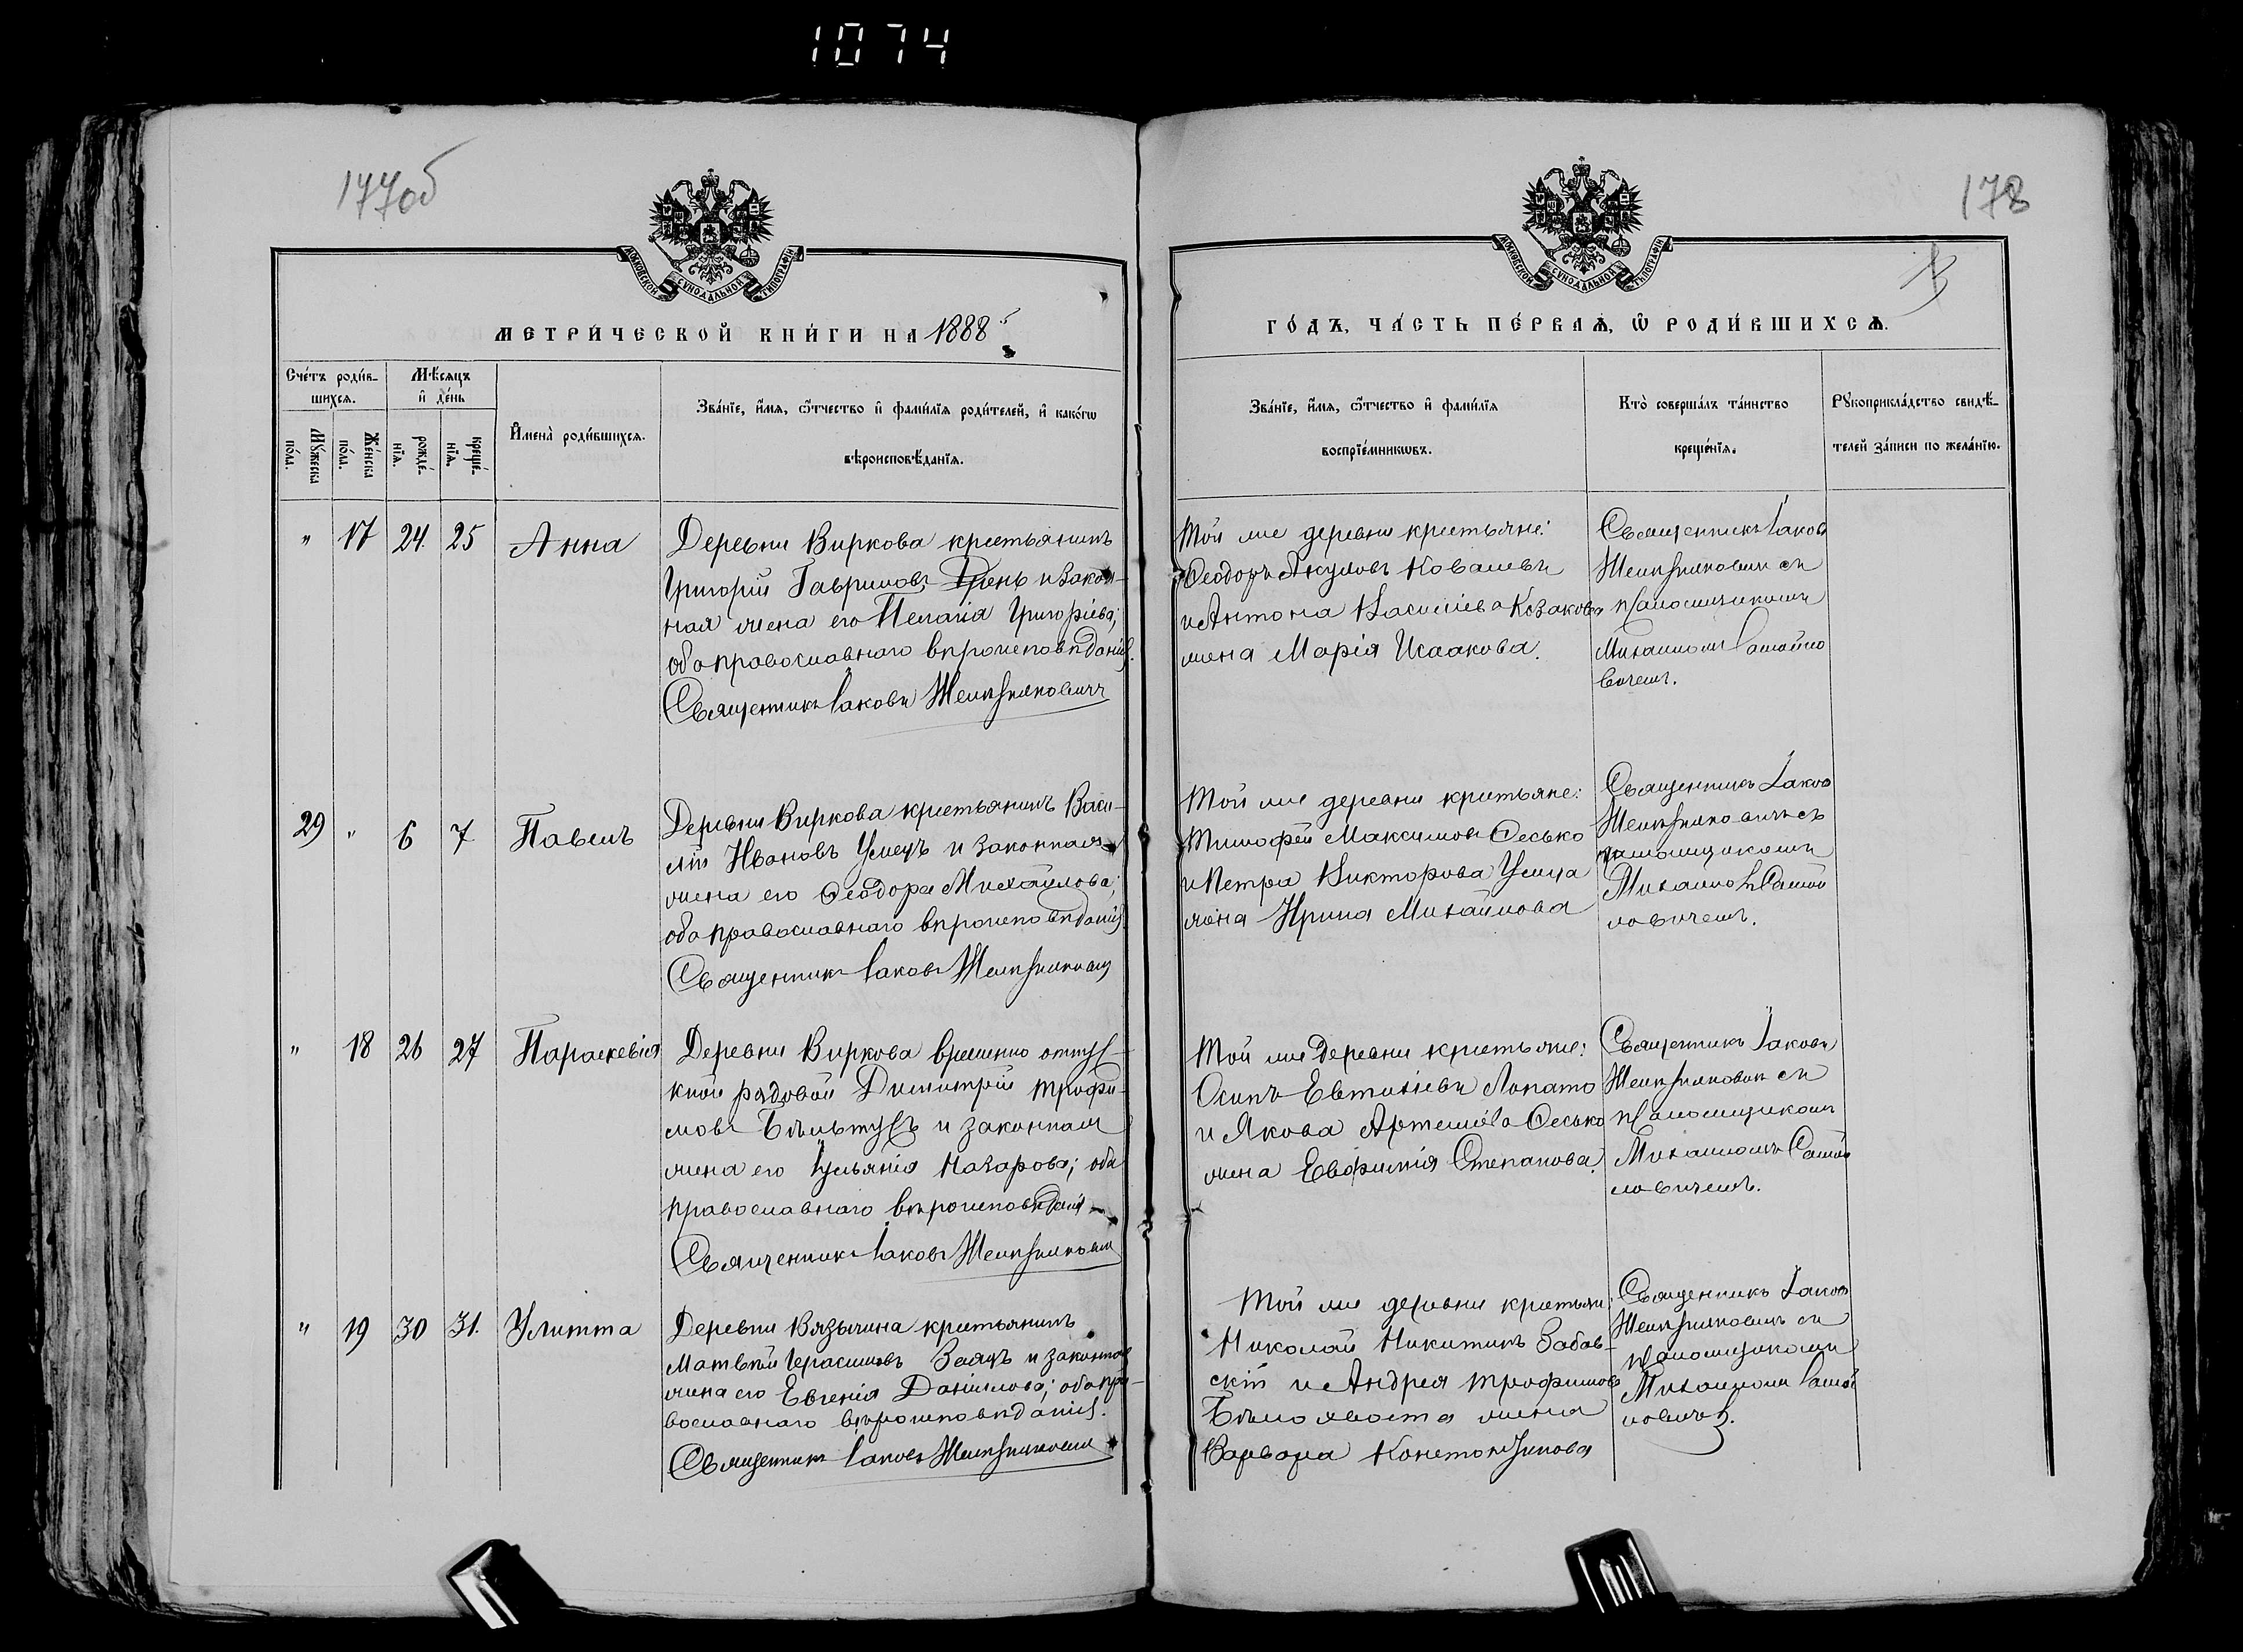 1074
177об
МОСКОВСКОЙ СѴНОДАЛЬНОЙ ТИПОГРАФІИ
МЕТРИ́ЧЕСКОЙ КНИ́ГИ НА 1888
Сче́тъ роди́в-
шихсѧ.
Мѣ́сѧцъ
и҆ де́нь
Мꙋ́жеска
по́ла.
Же́нска
по́ла.
рожде́-
нїѧ.
креще́-
нїѧ.
И҆мена̀ роди́вшихсѧ.
Зва́нїе, и҆́мѧ, ѻ҆́тчество и҆ фами́лїѧ роди́телей, и҆ како́гѡ
вѣроисповѣ́данїѧ.
" 17 24. 25 Анна
Деревни Виркова крестьянинъ
Григорій Гавриловъ Грень и закон-
ная жена его Пелагія Григоріева;
оба православнаго вѣроисповѣданія.
Священникъ Іаковъ
29 " 6 7 Павелъ
Деревни Виркова крестьянинъ Васи-
лій Ивановъ Усмецъ и законная
жена его Ѳеодора Михайлова;
оба православнаго вѣроисповѣданія.
Священникъ Іаковъ
" 18 26 27 Параскевія
Деревни Виркова временно отпус-
кной рядовой Димитрій Трофи-
мовъ и законная
жена его Ульянія Назарова; оба
православнаго вѣроисповѣданія
Священникъ Іаковъ
" 19 30 31. Улитта
Деревни Вязычина крестьянинъ
Матвѣй Герасимовъ Заяцъ и законная
жена его Евгенія Даніилова; оба пра-
вославнаго вѣроисповѣданія.
Священникъ Іаковъ
178
МОСКОВСКОЙ СѴНОДАЛЬНОЙ ТИПОГРАФІИ
ГО́ДЪ, ЧА́СТЬ ПЕ́РВАѦ, Ѡ҆ РОДИ́ВШИХСѦ.
Зва́нїе, и҆́мѧ, ѻ҆́тчество и҆ фами́лїѧ
воспрїе́мникѡвъ.
Кто̀ соверша́лъ та́инство
креще́нїѧ.
Рꙋкоприкла́дство свидѣ́-
телей за́писи по жела́нїю.
Той же деревни крестьяне:
Ѳеодоръ Акуловъ Ковалевъ
и Антона Васильева Козакова
жена Марія Исаакова.
Священникъ Іаковъ
съ
псаломщикомъ
Михаиломъ Самойло
вичемъ.
Той же деревни крестьяне:
Тимофей Максимовъ Сесько
и Петра Викторова Усмца
жена Ирина Михайлова
Священникъ Іаковъ
съ
псаломщикомъ
Михаиломъ Самой
ловичемъ.
Той же деревни крестьяне:
Осипъ Евтихіевъ Лопато
и Якова Артемьева Сесько
жена Евфимія Степанова.
Священникъ Іаковъ
съ
псаломщикомъ
Михаиломъ Самой
ловичемъ.
Той же деревни крестьяне:
Николай Никитинъ Забав-
скій и Андрея Трофимова
Бѣлохвоста жена
Варвара Константинова
Священникъ Іаковъ
съ
псаломщикомъ
Михаиломъ Самой
ловичемъ.